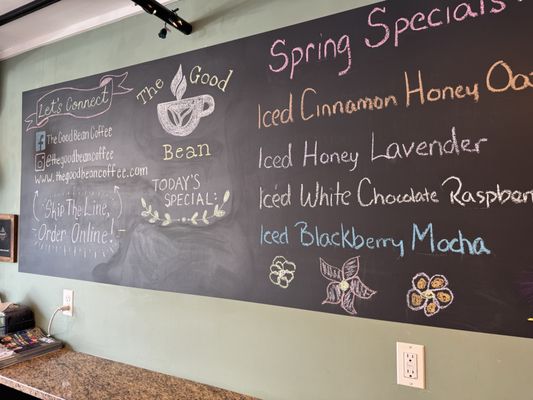 Let's Connect
The Good Bean Coffee
@thegoodbeancoffee
www.thegoodbeancoffee.com
"Skip The Line,
Order Online!"
The Good
Bean
TODAY'S
SPECIAL:
Spring Specials
Iced Cinnamon Honey Oat
Iced Honey Lavender
Iced White Chocolate Raspberr
Iced Blackberry Mocha